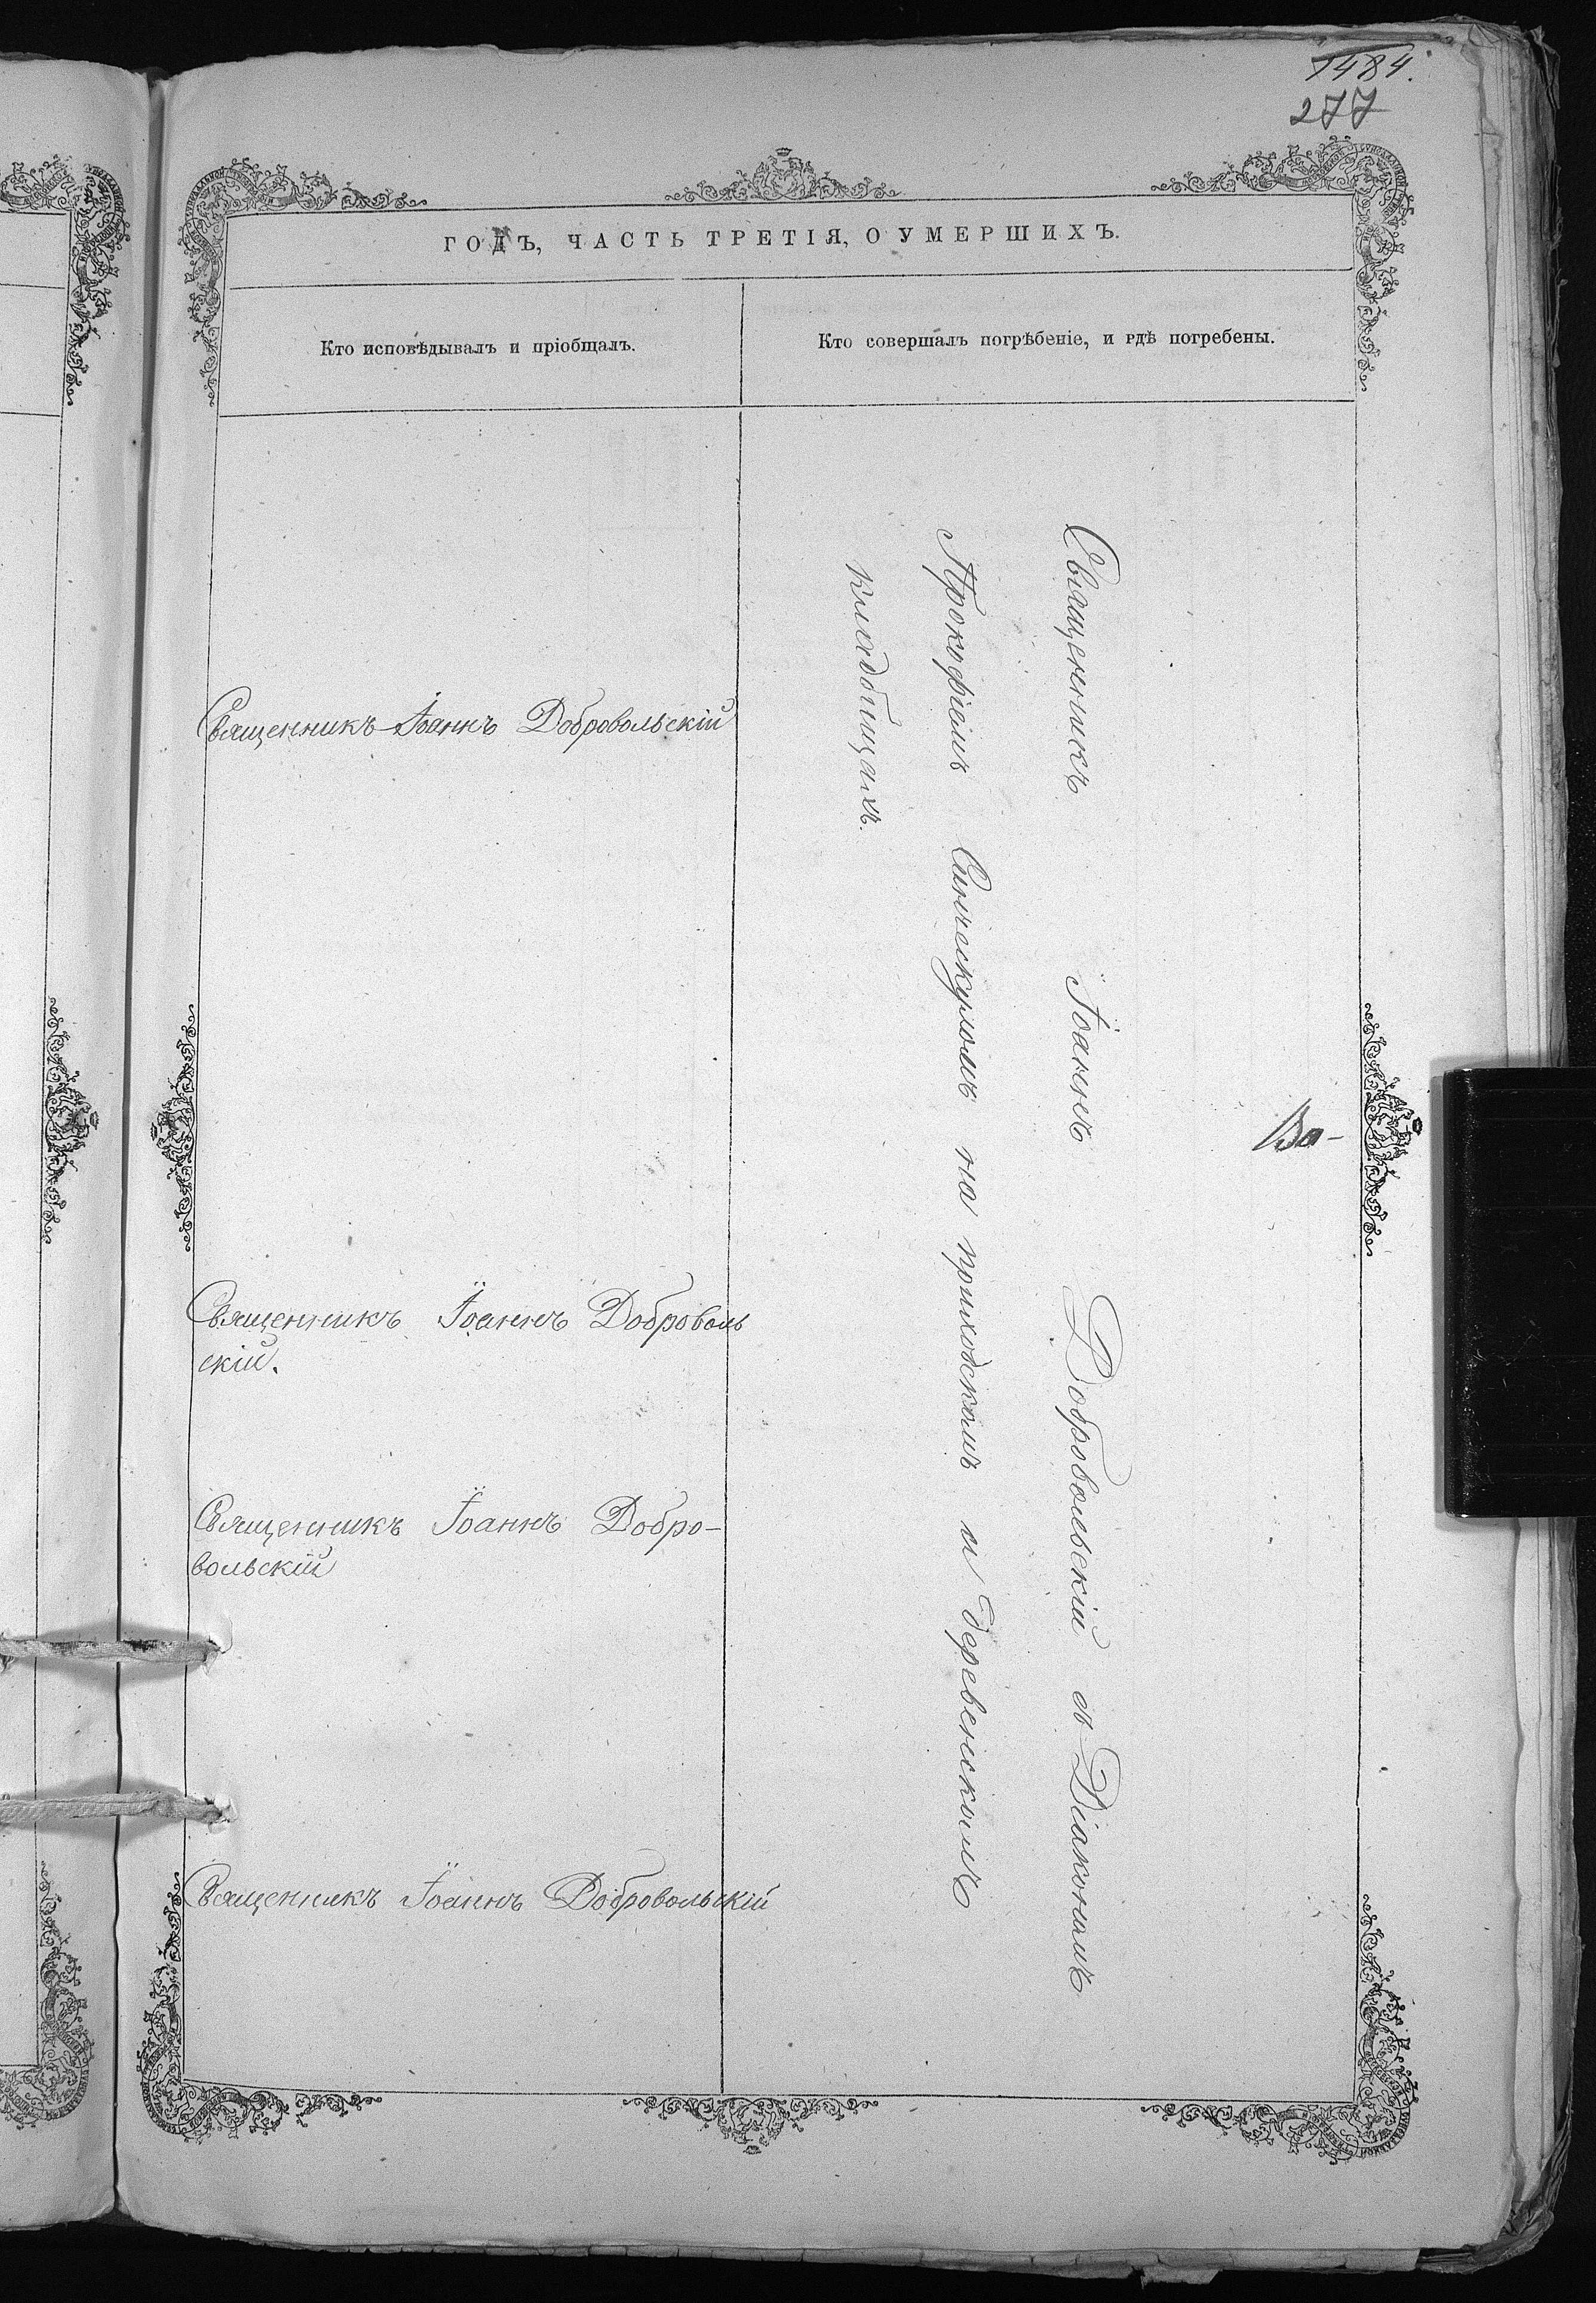 1484.
277
ГОДЪ, ЧАСТЬ ТРЕТІЯ, О УМЕРШИХЪ.
Кто исповѣдывалъ и пріобщалъ.
Кто совершалъ погрѣбеніе, и гдѣ погребены.
Священникъ Іоаннъ Добровольскій
Священникъ Іоаннъ Доброволь
скій.
Священникъ Іоаннъ Добро-
вольскій
Священникъ Іоаннъ Добровольскій
Священникъ Іоаннъ Добровольскій с Діакономъ
Прокофіемъ на приходскомъ и деревенскомъ
кладбищахъ.